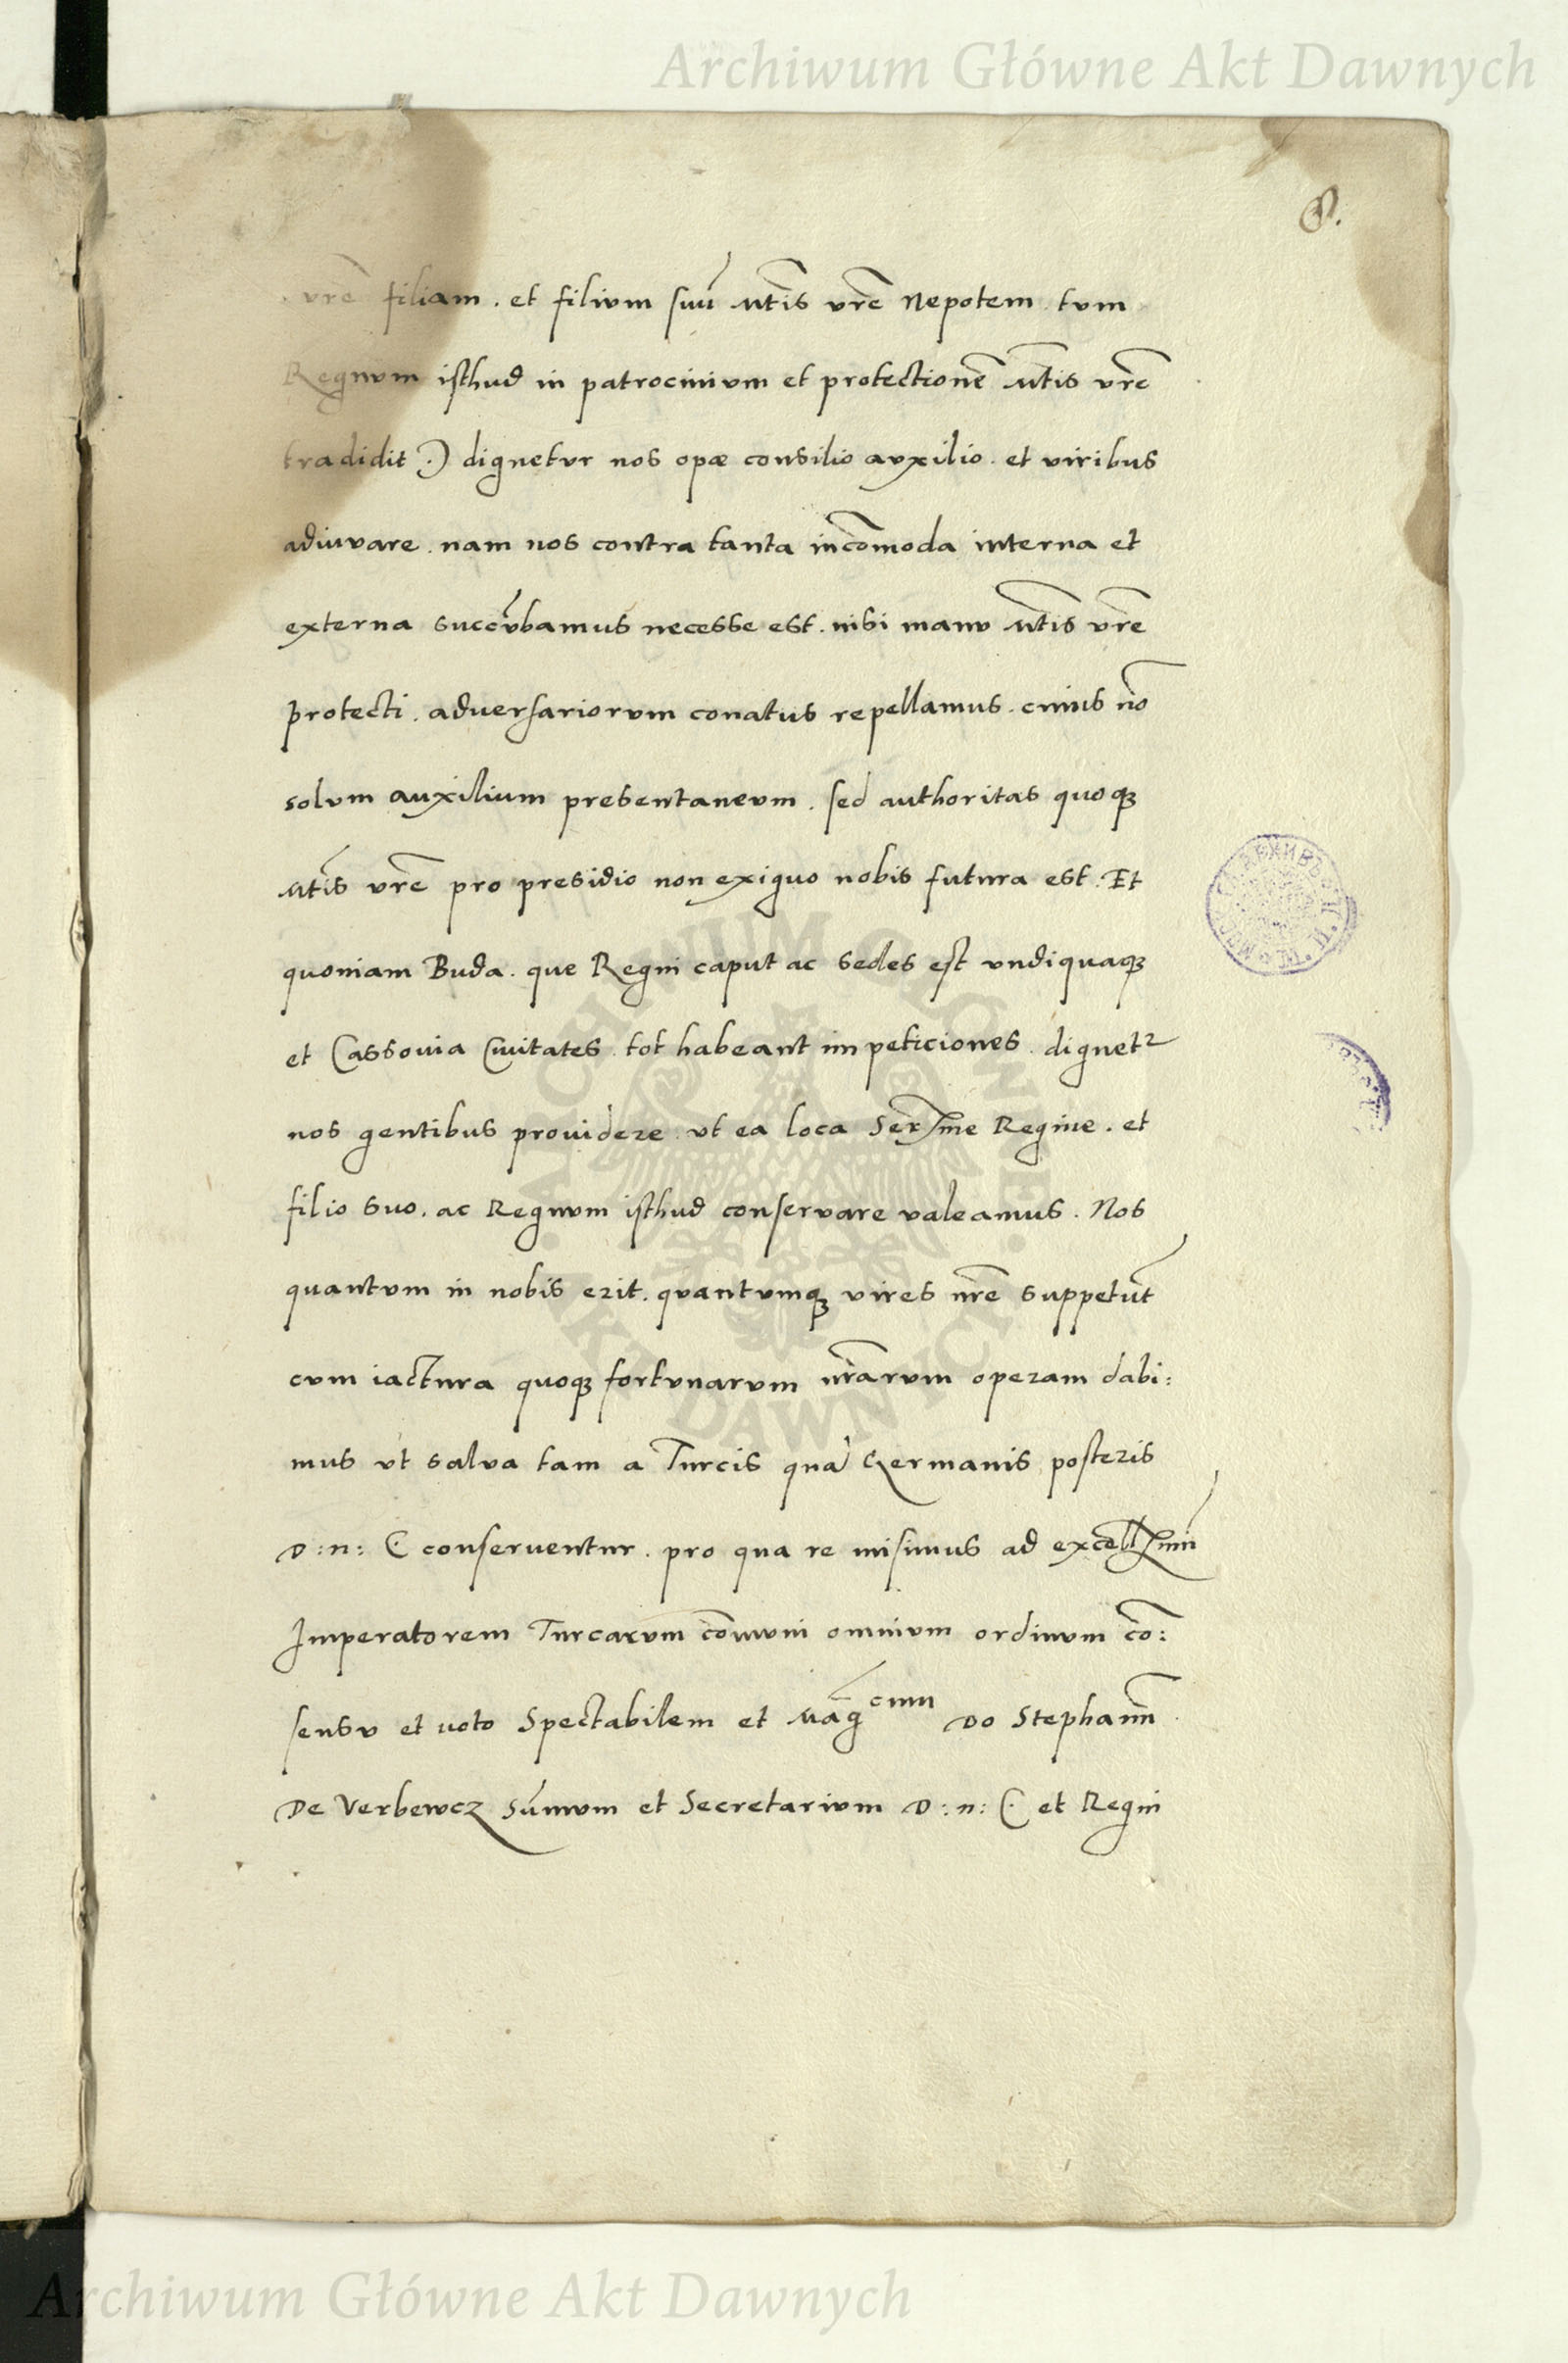 Archiwum Główne Akt Dawnych
vrē filiam . et filivm suū Mtis vrē Nepotem . tvm
Regnvm isthud in patrocinivm et protectionē Mtis vrē
tradidit .) dignetvr nos opæ consilio avxilio . et viribus
adiuvare . nam nos contra tanta incōmoda interna et
externa succūbamus necesse est . nisi manv Mtis vrē
protecti . adversariorvm conatus repellamus . cuius nō
solvm auxilium presentanevm . sed authoritas quoqꝫ
Mtis vrē pro presidio non exiguo nobis futura est . Et
quoniam Buda . que Regni caput ac sedes est vndiquaqꝫ
et Cassouia Ciuitates . tot habeant impeticiones . dignetᷣ
nos gentibus prouidere . vt ea loca Serme Regine . et
filio svo . ac Regnvm isthud conservare valeamus . Nos
quantvm in nobis erit . qvantvmqꝫ vires nrē suppetūt
cvm iactura quoqꝫ fortvnarvm nrārvm operam dabi:
mus vt salva tam a Turcis quā Germanis posteris
D : n : C conserventur . pro qua re misimus ad excellmū
Imperatorem Turcarvm cōmvni omnivm ordinvm cō:
sensv et voto Spectabilem et Mag̅cum Do Stephanū
De Verbewcz Sūmvm et Secretarivm D : n : C et Regni
ARCHIWUM GŁÓWNE AKT DAWNYCH
Archiwum Główne Akt Dawnych